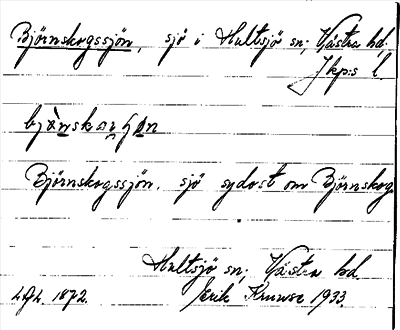 Björnskogssjön, sjö i Hultsjö sn; Västra hd,
Jkps l.
Björnskogssjön. sjö sydost om Björnskog
Hultsjö sn; Västra hd.
1872. Erik Kruuse 1933.